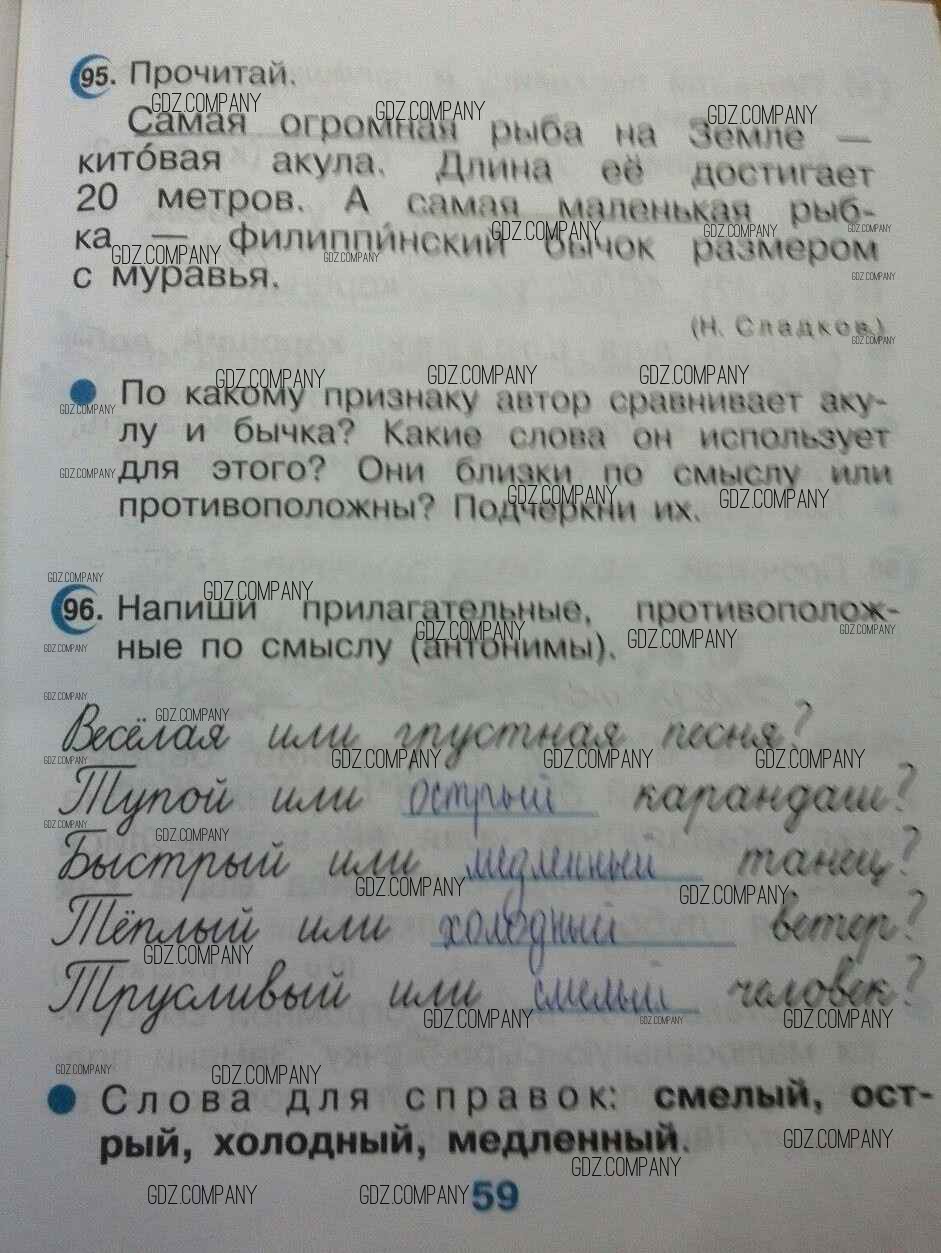 95. Прочитай.
Самая огромная рыба на Земле —
кито́вая акула. Длина её достигает
20 метров. А самая маленькая рыб-
ка — филиппи́нский бычок размером
с муравья.
(Н. Сладков)
По какому признаку автор сравнивает аку-
лу и бычка? Какие слова он использует
для этого? Они близки по смыслу или
противоположны? Подчеркни их.
96. Напиши прилагательные, противополож-
ные по смыслу (антонимы).
Весёлая или грустная песня?
Тупой или острый карандаш?
Быстрый или медленный танец?
Тёплый или холодный ветер?
Трусливый или смелый человек?
Слова для справок: смелый, ост-
рый, холодный, медленный.
59
GDZ.COMPANY